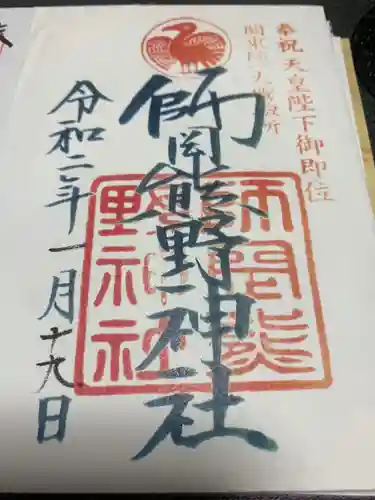 奉祝天皇陛下御即位
関東随一大霊験所
師岡熊野神社
師岡熊
野神社
令和二年一月十九日